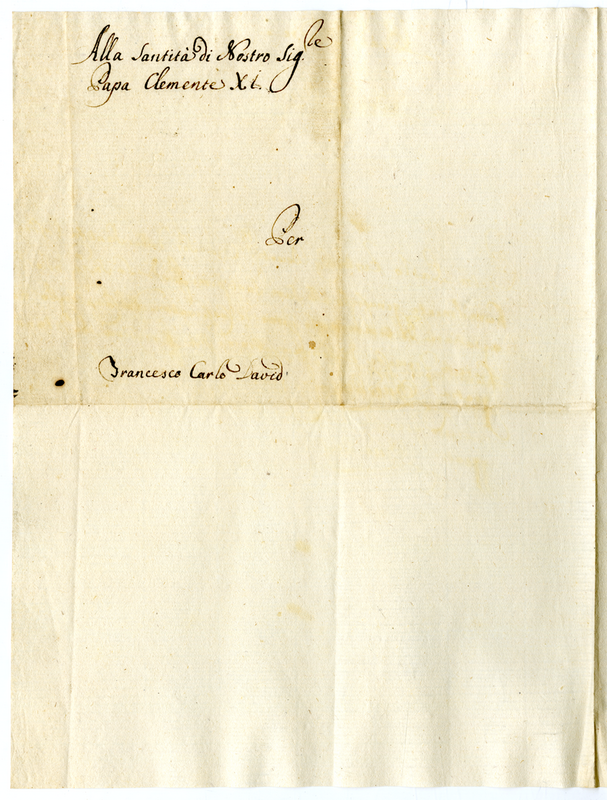 Alla Santità di Nostro Sig.re
Papa Clemente XI.
Per
Francesco Carlo David